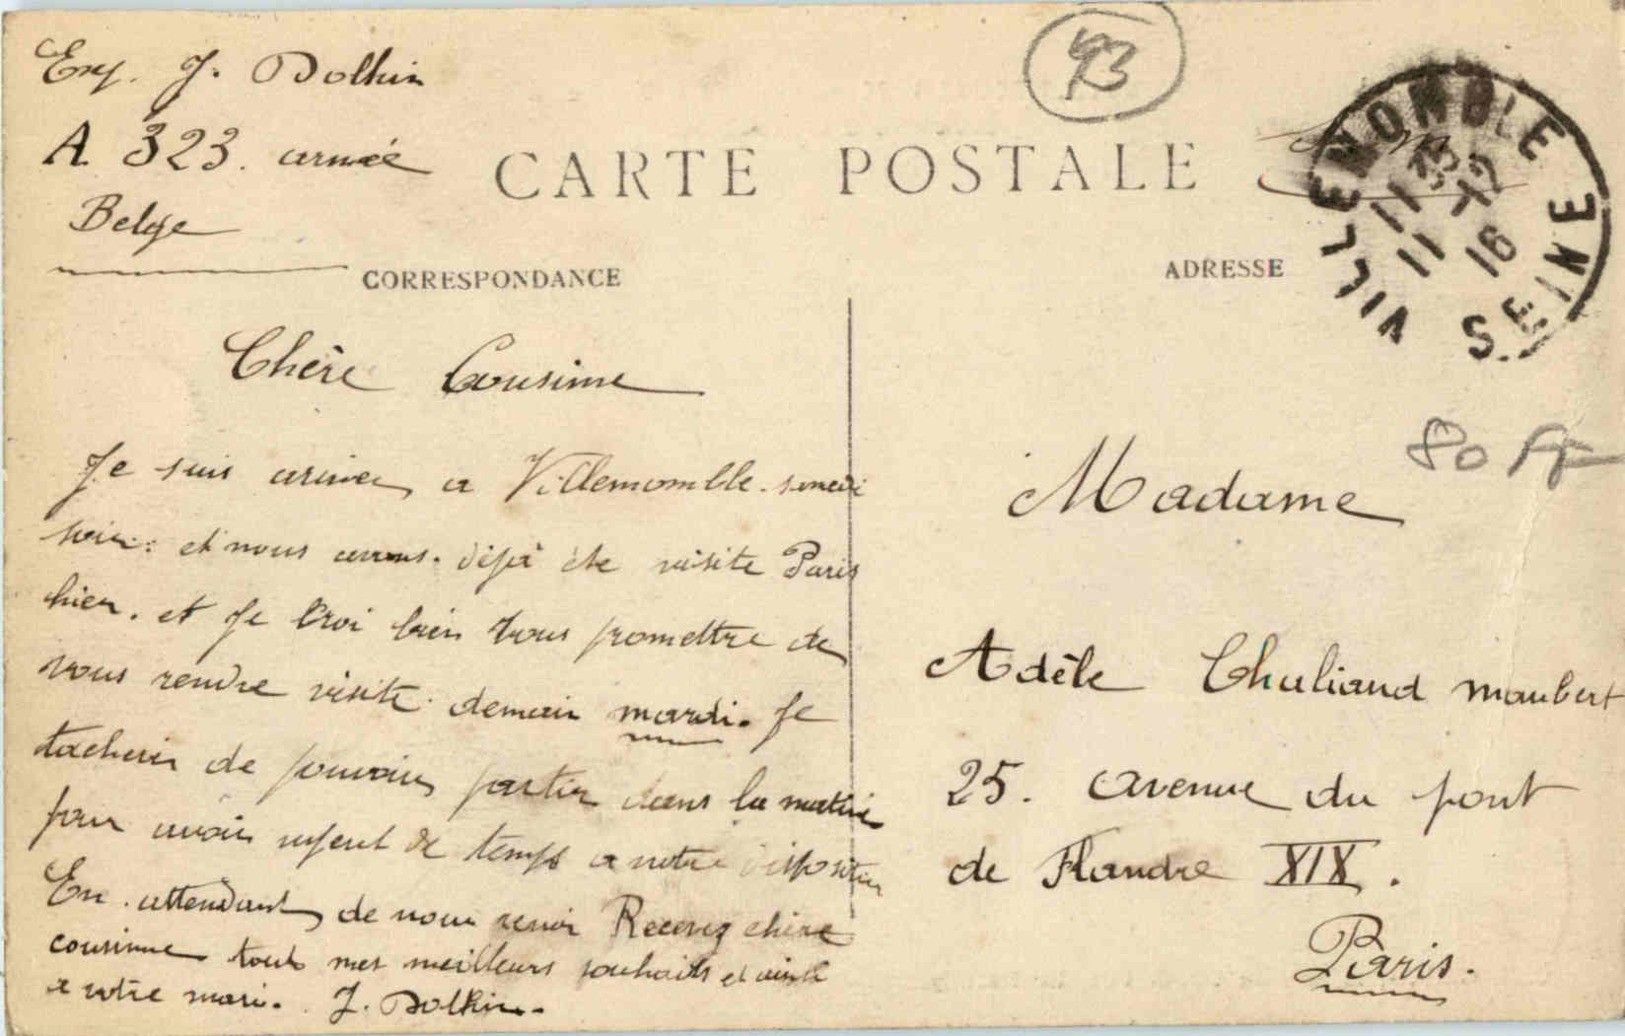 Exp. J. Dolhin
A. 323. armée
Belge
93
CARTE POSTALE
VILLEMOMBLE SEINE
11 35
11 -12
16
CORRESPONDANCE
ADRESSE
Chère Cousinne
Je suis arriver a Villemomble. samedi
soir: et nous avons. déjà éte visite Paris
hier. et Je Croi bien vous promettre de
vous rendre visite. demain mardi. Je
tacherer de pouvoir partir dans la matiné
pour avoir de temps a notre disposition
En attendant de nous revoir Recevez chère
cousinne tout mes meilleurs souhaits et
a votre mari. J. Dolhin.
80
Madame
Adèle Chuliand maubert
25. avenue du pont
de Flandre XIX.
Paris.